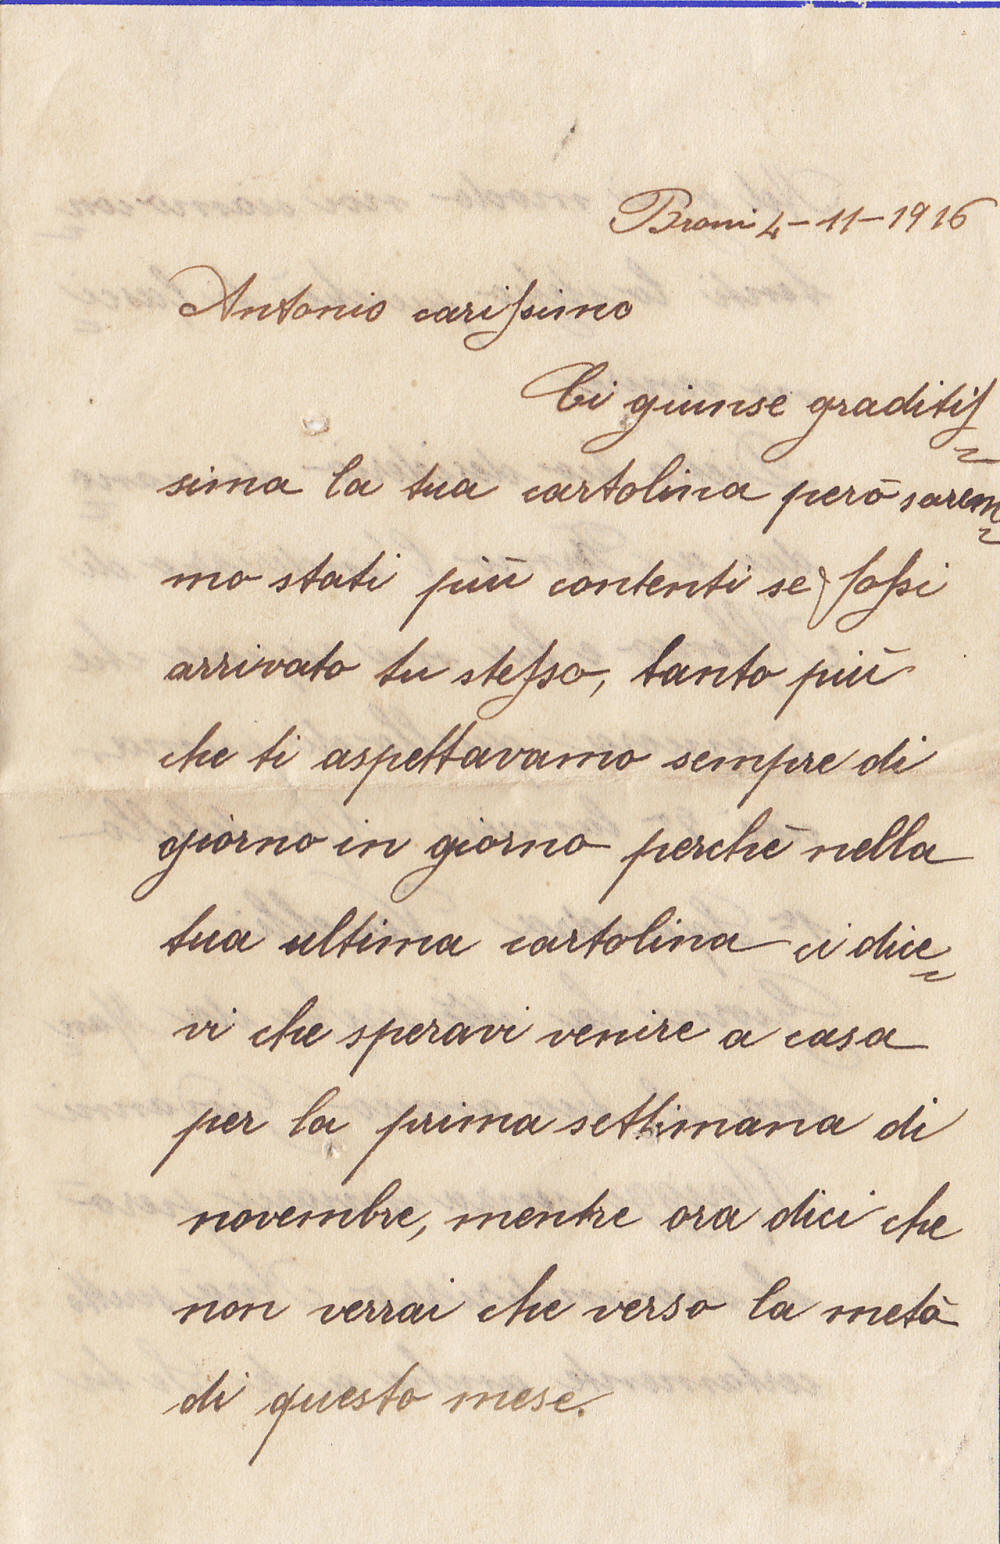 Broni 4-11-1916
Antonio carissimo
Ci giunse graditis=
sima la tua cartolina però sarem=
mo stati più contenti se fossi
arrivato tu stesso, tanto più
che ti aspettavamo sempre di
giorno in giorno perchè nella
tua ultima cartolina ci dice=
vi che speravi venire a casa
per la prima settimana di
novembre, mentre ora dici che
non verrai che verso la metà
di questo mese.